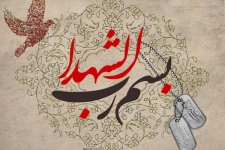 بسم رب الشهدا